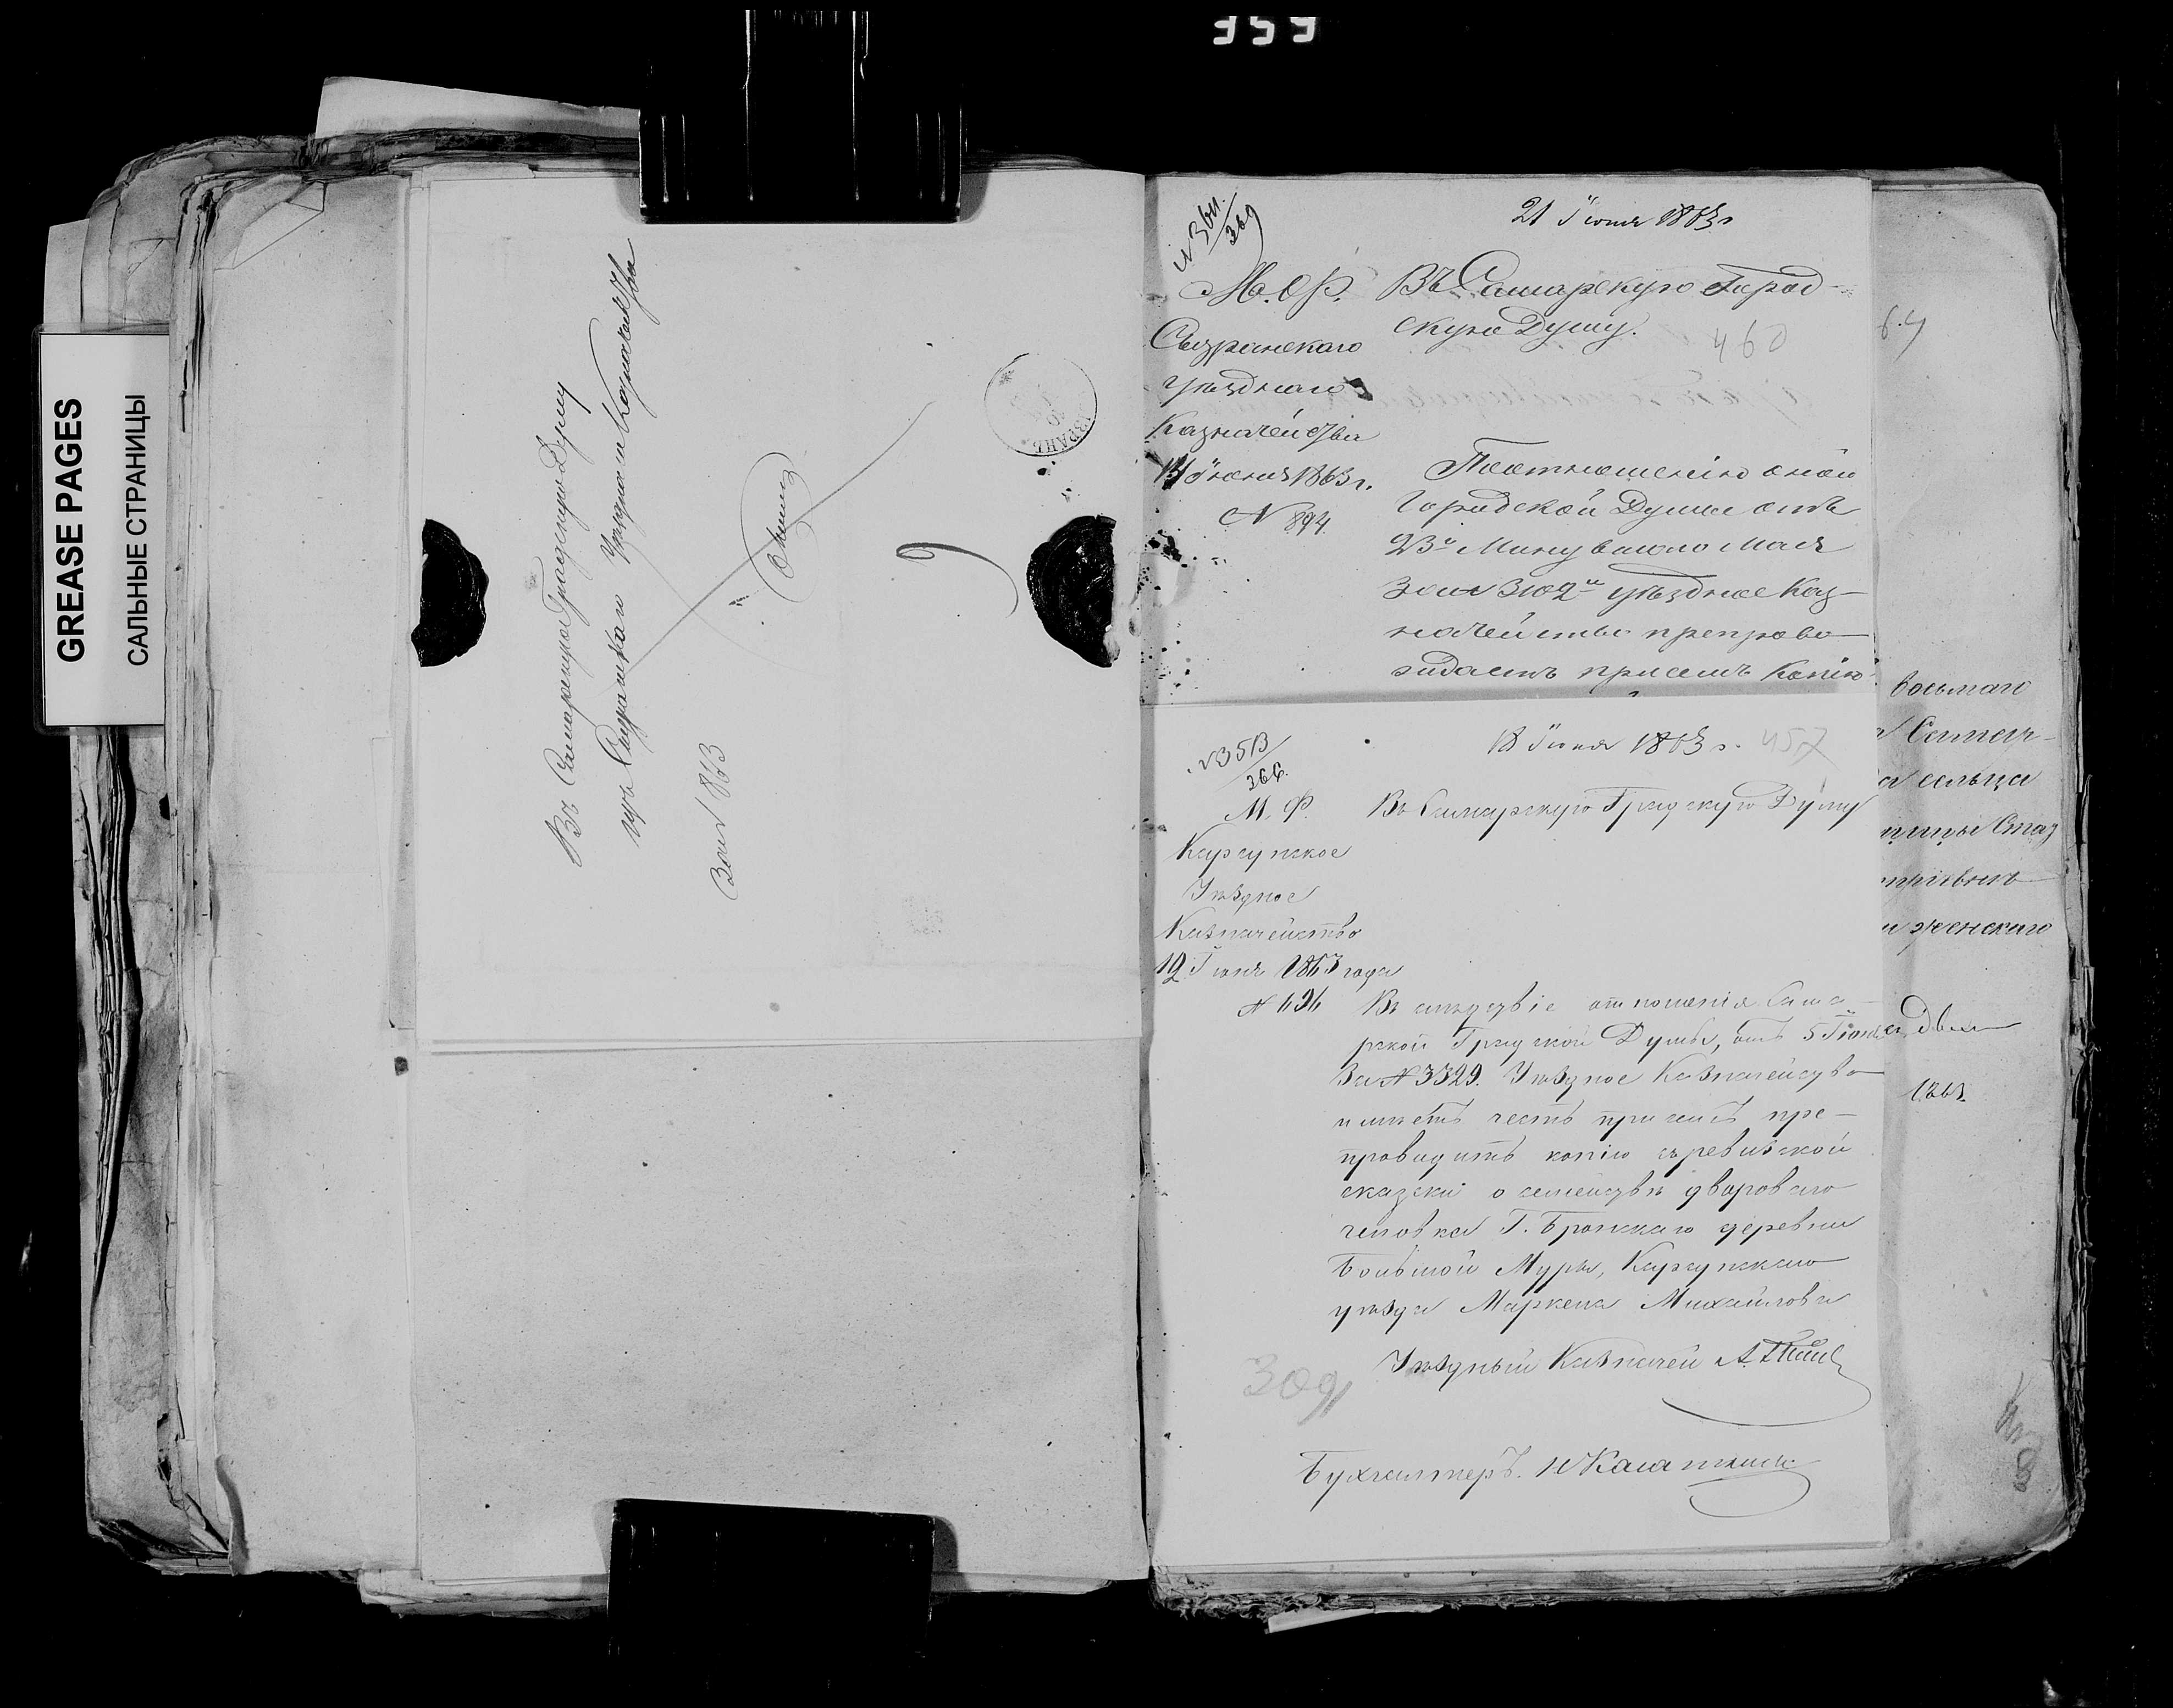 359
GREASE PAGES
САЛЬНЫЕ СТРАНИЦЫ
Въ Самарскую Градскую Думу
изъ Сызранскаго Уѣзднаго Казначейства
За № 863
21 Іюня 1863 г
М. Ф.
Сызранскаго
уѣзднаго
Казначейства
Іюня 1863 г.
№ 894.
Въ Самарскую Город-
скую Думу.
460
По отношенію оной
Городской Думы отъ
23го Минувшаго Мая
за № 3102м уѣздное Каз-
начейство препрово-
ждаетъ присемъ копію
№ 3513/366.
18 Іюня 1863 г. 457
М. Ф.
Карсунское
Уѣздное
Казначейство
12 Іюня 1863 года
№ 696
Въ Самарскую Градскую Думу
Въ слѣдствіе отношенія Сама-
рской Градской Думы, отъ 5 Іюня
За № 3329. Уѣздное Казначейство
имѣетъ честь при семъ пре-
проводить копію съ ревизской
сказки о семействѣ двороваго
человека Г. Бронскаго деревни
Большой Муры, Карсунскаго
уѣзда Маркела Михайлова
Уѣздный Казначей
Бухгалтеръ
восьмаго
сельца
женскаго
1863.